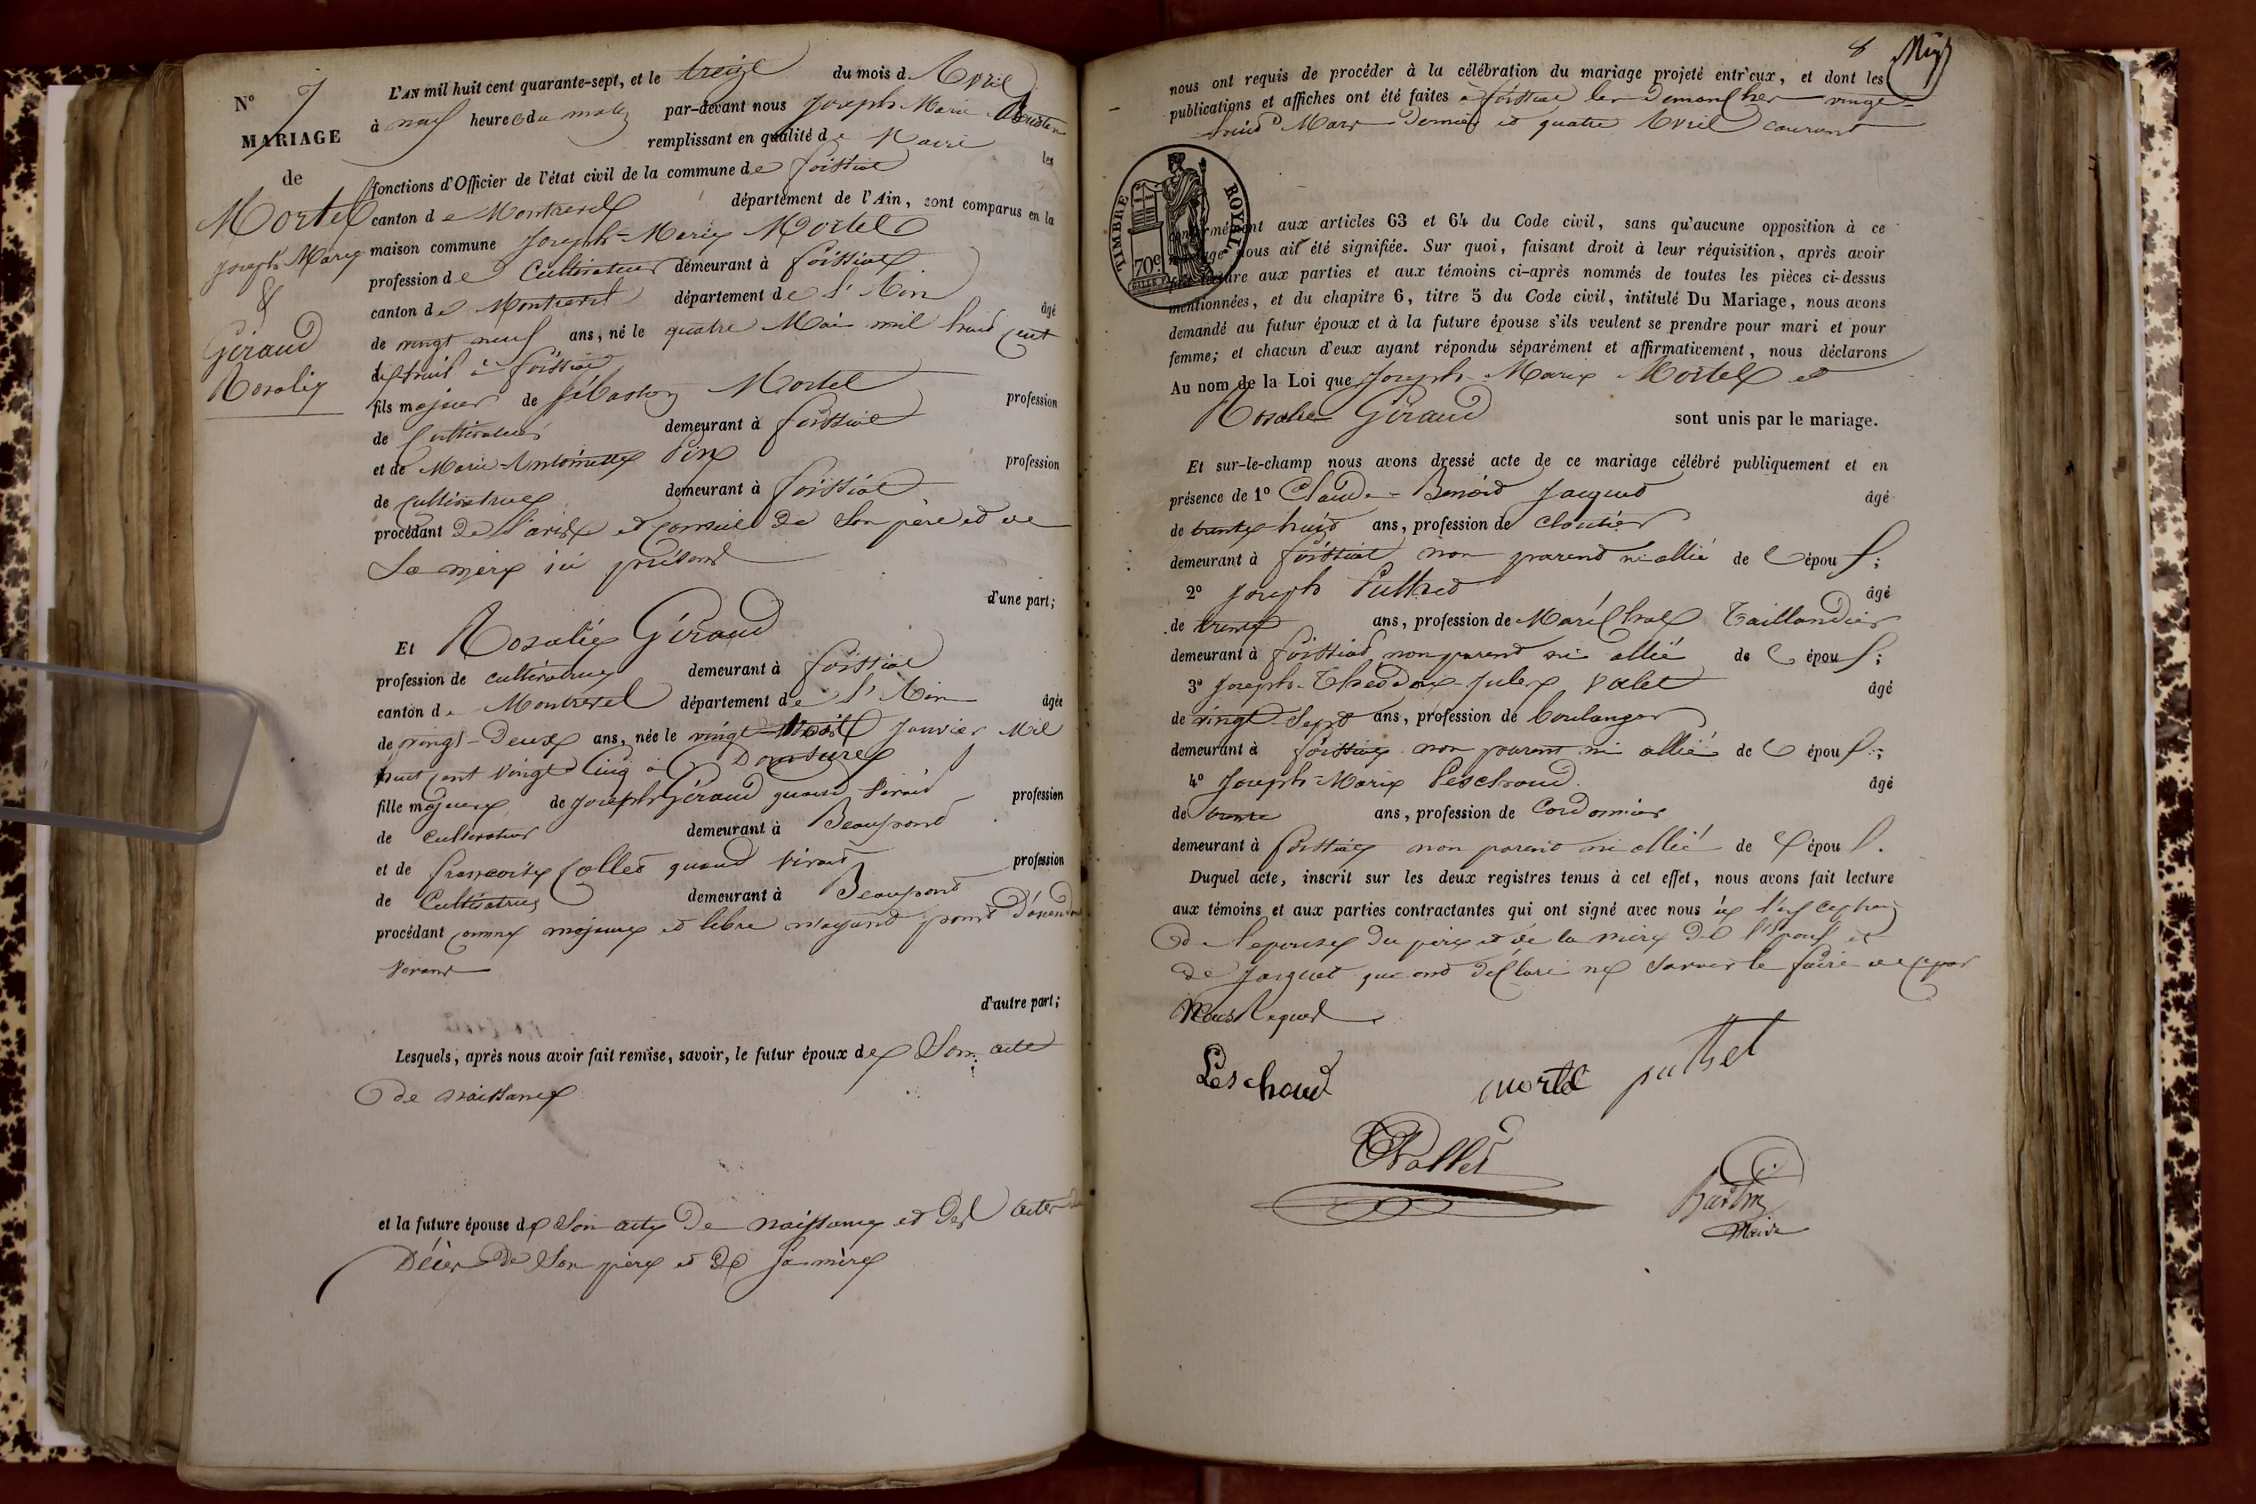 N° 7
MARIAGE
de
Mortel
Joseph Marie
&
Géraud
Rosalie
L'AN mil huit cent quarante-sept, et le treize du mois d'Avril
à neuf heures du matin par-devant nous Joseph Marie
remplissant en qualité de Maire les
fonctions d'Officier de l'état civil de la commune de foissiat
canton de Montrevel département de l'Ain, sont comparus en la
maison commune Joseph-Marie Mortel
profession de Cultivateur demeurant à foissiat
canton de Montrevel département de l'Ain âgé
de vingt neuf ans, né le quatre Mai mil huit cent
dix huit à foissiat
fils majeur de Sébastien Mortel profession
de Cultivateur demeurant à foissiat
et de Marie-Antoinette profession
de cultivatrice demeurant à foissiat
procédant de l'avis et conseil de son père et de
Sa mère ici présents
d'une part;
Et Rosalie Géraud
profession de cultivatrice demeurant à foissiat
canton de Montrevel département de l'Ain âgée
de vingt-Deux ans, née le vingt Janvier Mil
huit cent vingt Cinq à Domsure
fille majeure de Joseph Géraud quand vivait profession
de cultivateur demeurant à Beaupont
et de françoise Collet quand vivait profession
de Cultivatrice demeurant à Beaupont
procédant comme majeure et libre n'ayant point d'ascendants
vivans
d'autre part;
Lesquels, après nous avoir fait remise, savoir, le futur époux de Son acte
de naissance
et la future épouse de Son acte de naissance et des actes de
Décès de Son père et de Sa mère
8
nous ont requis de procéder à la célébration du mariage projeté entr'eux, et dont les
publications et affiches ont été faites à foissiat les Dimanches vingt-
huit Mars Dernier et quatre Avril courant
TIMBRE ROYAL
70c
conformément aux articles 63 et 64 du Code civil, sans qu'aucune opposition à ce
mariage nous ait été signifiée. Sur quoi, faisant droit à leur réquisition, après avoir
fait lecture aux parties et aux témoins ci-après nommés de toutes les pièces ci-dessus
mentionnées, et du chapitre 6, titre 5 du Code civil, intitulé Du Mariage, nous avons
demandé au futur époux et à la future épouse s'ils veulent se prendre pour mari et pour
femme; et chacun d'eux ayant répondu séparément et affirmativement, nous déclarons
Au nom de la Loi que Joseph-Marie Mortel et
Rosalie Géraud sont unis par le mariage.
Et sur-le-champ nous avons dressé acte de ce mariage célébré publiquement et en
présence de 1° Claude-Benoit Jacquet âgé
de trente-huit ans, profession de cloutier
demeurant à foissiat non parent ni allié de l'époux;
2° Joseph Puthet âgé
de trente ans, profession de Maréchal Taillandier
demeurant à foissiat non parent ni allié de l'époux;
3° Joseph-Théodore-Jules Valet âgé
de vingt Sept ans, profession de boulanger
demeurant à foissiat non parent ni allié de l'époux;
4° Joseph-Marie Leschaud âgé
de trente ans, profession de Cordonnier
demeurant à foissiat non parent ni allié de l'époux.
Duquel acte, inscrit sur les deux registres tenus à cet effet, nous avons fait lecture
aux témoins et aux parties contractantes qui ont signé avec nous à l'exception
de l'épouse du père et de la mère de l'époux et
de Jacquet qui ont déclaré ne savoir le faire de ce par
Nous Requis
Leschaud mortel puthet
Vallet
Maire